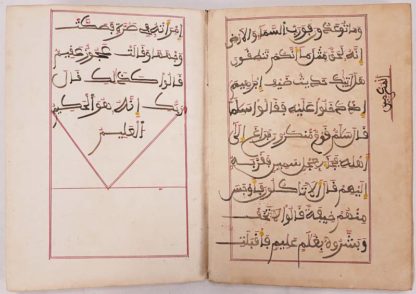 وما توعدون فورب السماء والارض
إنه لحق مثل ما أنكم تنطقون
هل أتيك حديث ضيف إبرهيم
المكرمين
إذ دخلوا عليه فقالوا سلما
قال سلم قوم منكرون فراغ إلى
أهله فجاء بعجل سمين فقربه
إليهم قال ألا تاكلون فأوجس
منهم خيفة قالوا لا تخف
وبشروه بغلم عليم فأقبلت
امرأته في صرة فصكت
وجهها وقالت عجوز عقيم
قالوا كذلك قال
ربك إنه هو الحكيم
العليم